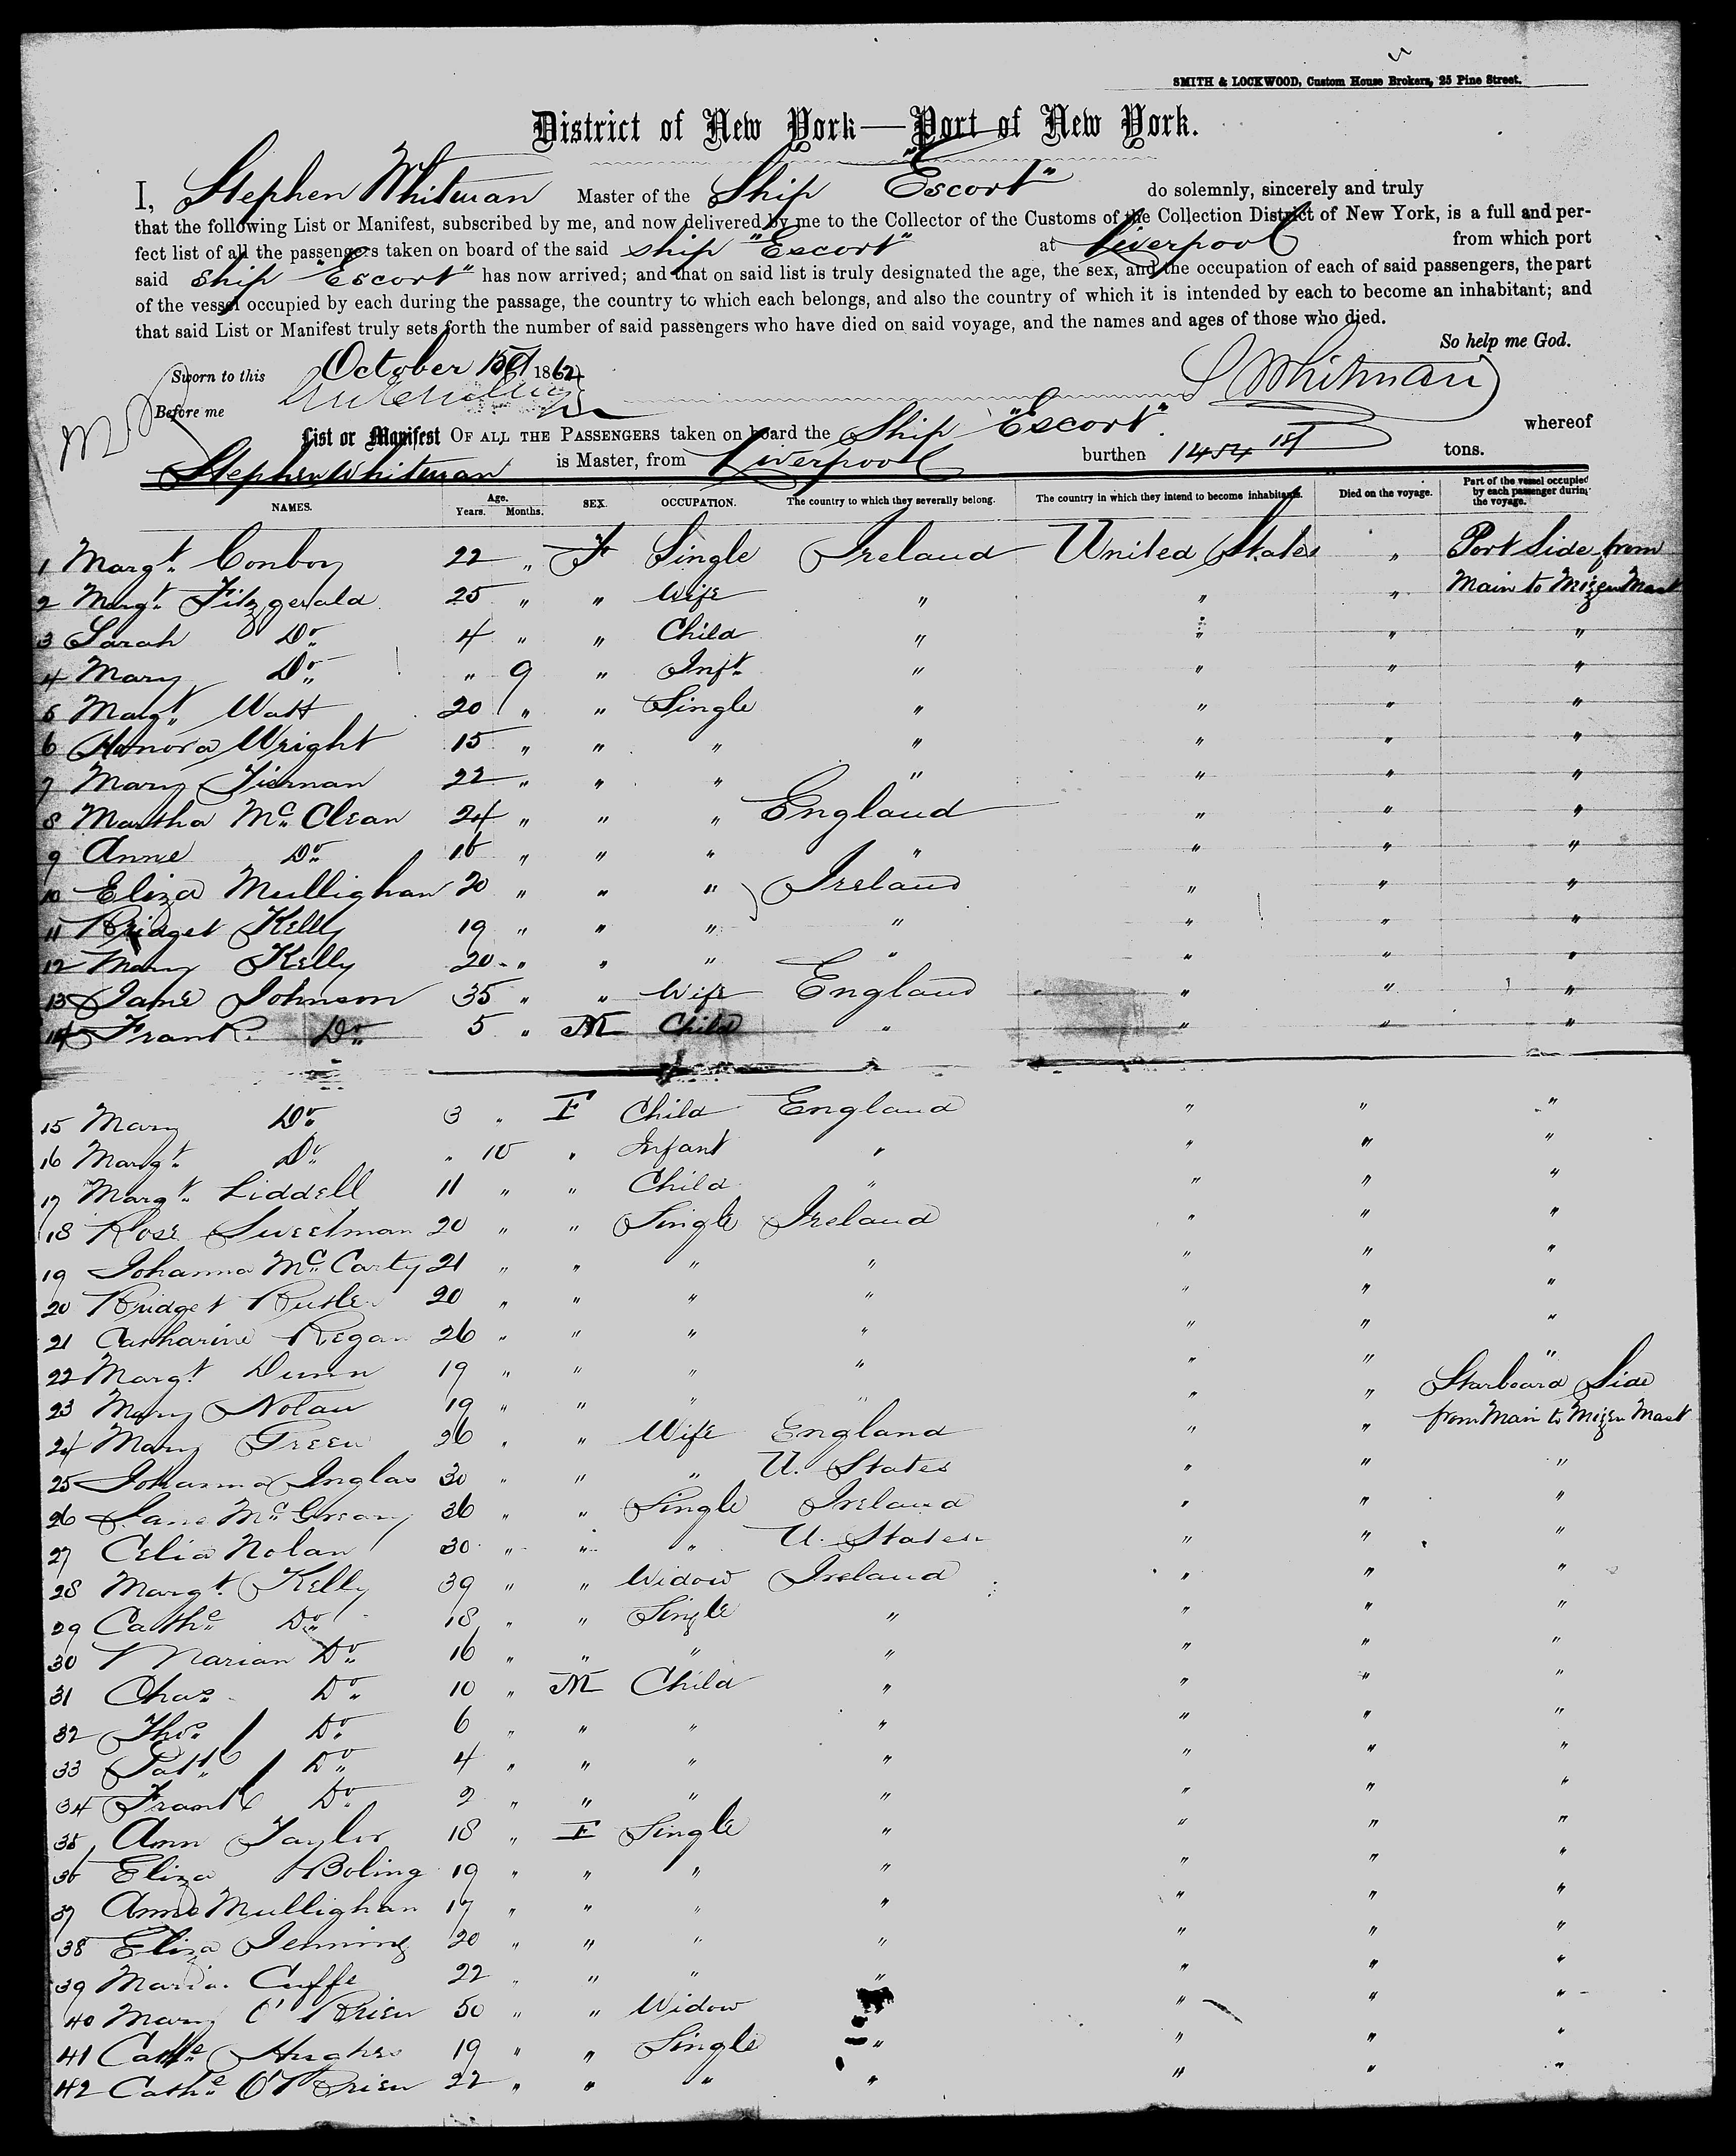 SMITH & LOCKWOOD, Custom House Brokers, 25 Pine Street.
District of New York—Port of New York.
I, Stephen Whitman Master of the Ship "Escort" do solemnly, sincerely and truly
that the following List or Manifest, subscribed by me, and now delivered by me to the Collector of the Customs of the Collection District of New York, is a full and per-
fect list of all the passengers taken on board of the said ship "Escort" at Liverpool from which port
said ship "Escort" has now arrived; and that on said list is truly designated the age, the sex, and the occupation of each of said passengers, the part
of the vessel occupied by each during the passage, the country to which each belongs, and also the country of which it is intended by each to become an inhabitant; and
that said List or Manifest truly sets forth the number of said passengers who have died on said voyage, and the names and ages of those who died.
So help me God.
Sworn to this October 1862
S Whitman
Before me
List or Manifest OF ALL THE PASSENGERS taken on board the Ship "Escort" whereof
Stephen Whitman is Master, from Liverpool burthen 1454 tons.
NAMES. Age. Years. Months. SEX. OCCUPATION. The country to which they severally belong. The country in which they intend to become inhabitants. Died on the voyage. Part of the vessel occupied by each passenger during the voyage.
1 Margt. Conboy 22 " F Single Ireland United States " Port Side from
2 Margt. Fitzgerald 25 " " Wife " " " Main to Mizen Mast
3 Sarah Do 4 " " Child " " " "
4 Mary Do " 9 " Inft. " " " "
5 Margt. Watt 20 " " Single " " " "
6 Honora Wright 15 " " " " " " "
7 Mary Tiernan 22 " " " " " " "
8 Martha Mc Clean 24 " " " England " " "
9 Anne Do 16 " " " " " " "
10 Eliza Mullighan 20 " " " Ireland " " "
11 Bridget Kelly 19 " " " " " " "
12 Mary Kelly 20 " " " " " " "
13 Jane Johnson 35 " " Wife England " " "
14 Frank Do 5 " M Child " " " "
15 Mary Do 3 " F Child England " " "
16 Margt. Do " 10 " Infant " " " "
17 Margt. Liddell 11 " " Child " " " "
18 Rose Sweetman 20 " " Single Ireland " " "
19 Johanna Mc Carty 21 " " " " " " "
20 Bridget Butler 20 " " " " " " "
21 Catharine Regan 26 " " " " " " "
22 Margt. Dunn 19 " " " " " " "
23 Mary Nolan 19 " " " " " " Starboard Side
24 Mary Green 26 " " Wife England " " from Main to Mizen Mast
25 Johanna Inglas 30 " " " U. States " " "
26 Jane Mc Greary 36 " " Single Ireland " " "
27 Celia Nolan 30 " " " U. States " " "
28 Margt. Kelly 39 " " Widow Ireland " " "
29 Cathe Do 18 " " Single " " " "
30 Marian Do 16 " " " " " " "
31 Chas Do 10 " M Child " " " "
32 Thos Do 6 " " " " " " "
33 Patk Do 4 " " " " " " "
34 Frank Do 2 " " " " " " "
35 Ann Taylor 18 " F Single " " " "
36 Eliza Boling 19 " " " " " " "
37 Anne Mullighan 17 " " " " " " "
38 Eliza Jenning 20 " " " " " " "
39 Maria Cuffe 22 " " " " " " "
40 Mary O'Brien 50 " " Widow " " "
41 Cathe Hughes 19 " " Single " " " "
42 Cathe O'Brien 22 " " " " " " "